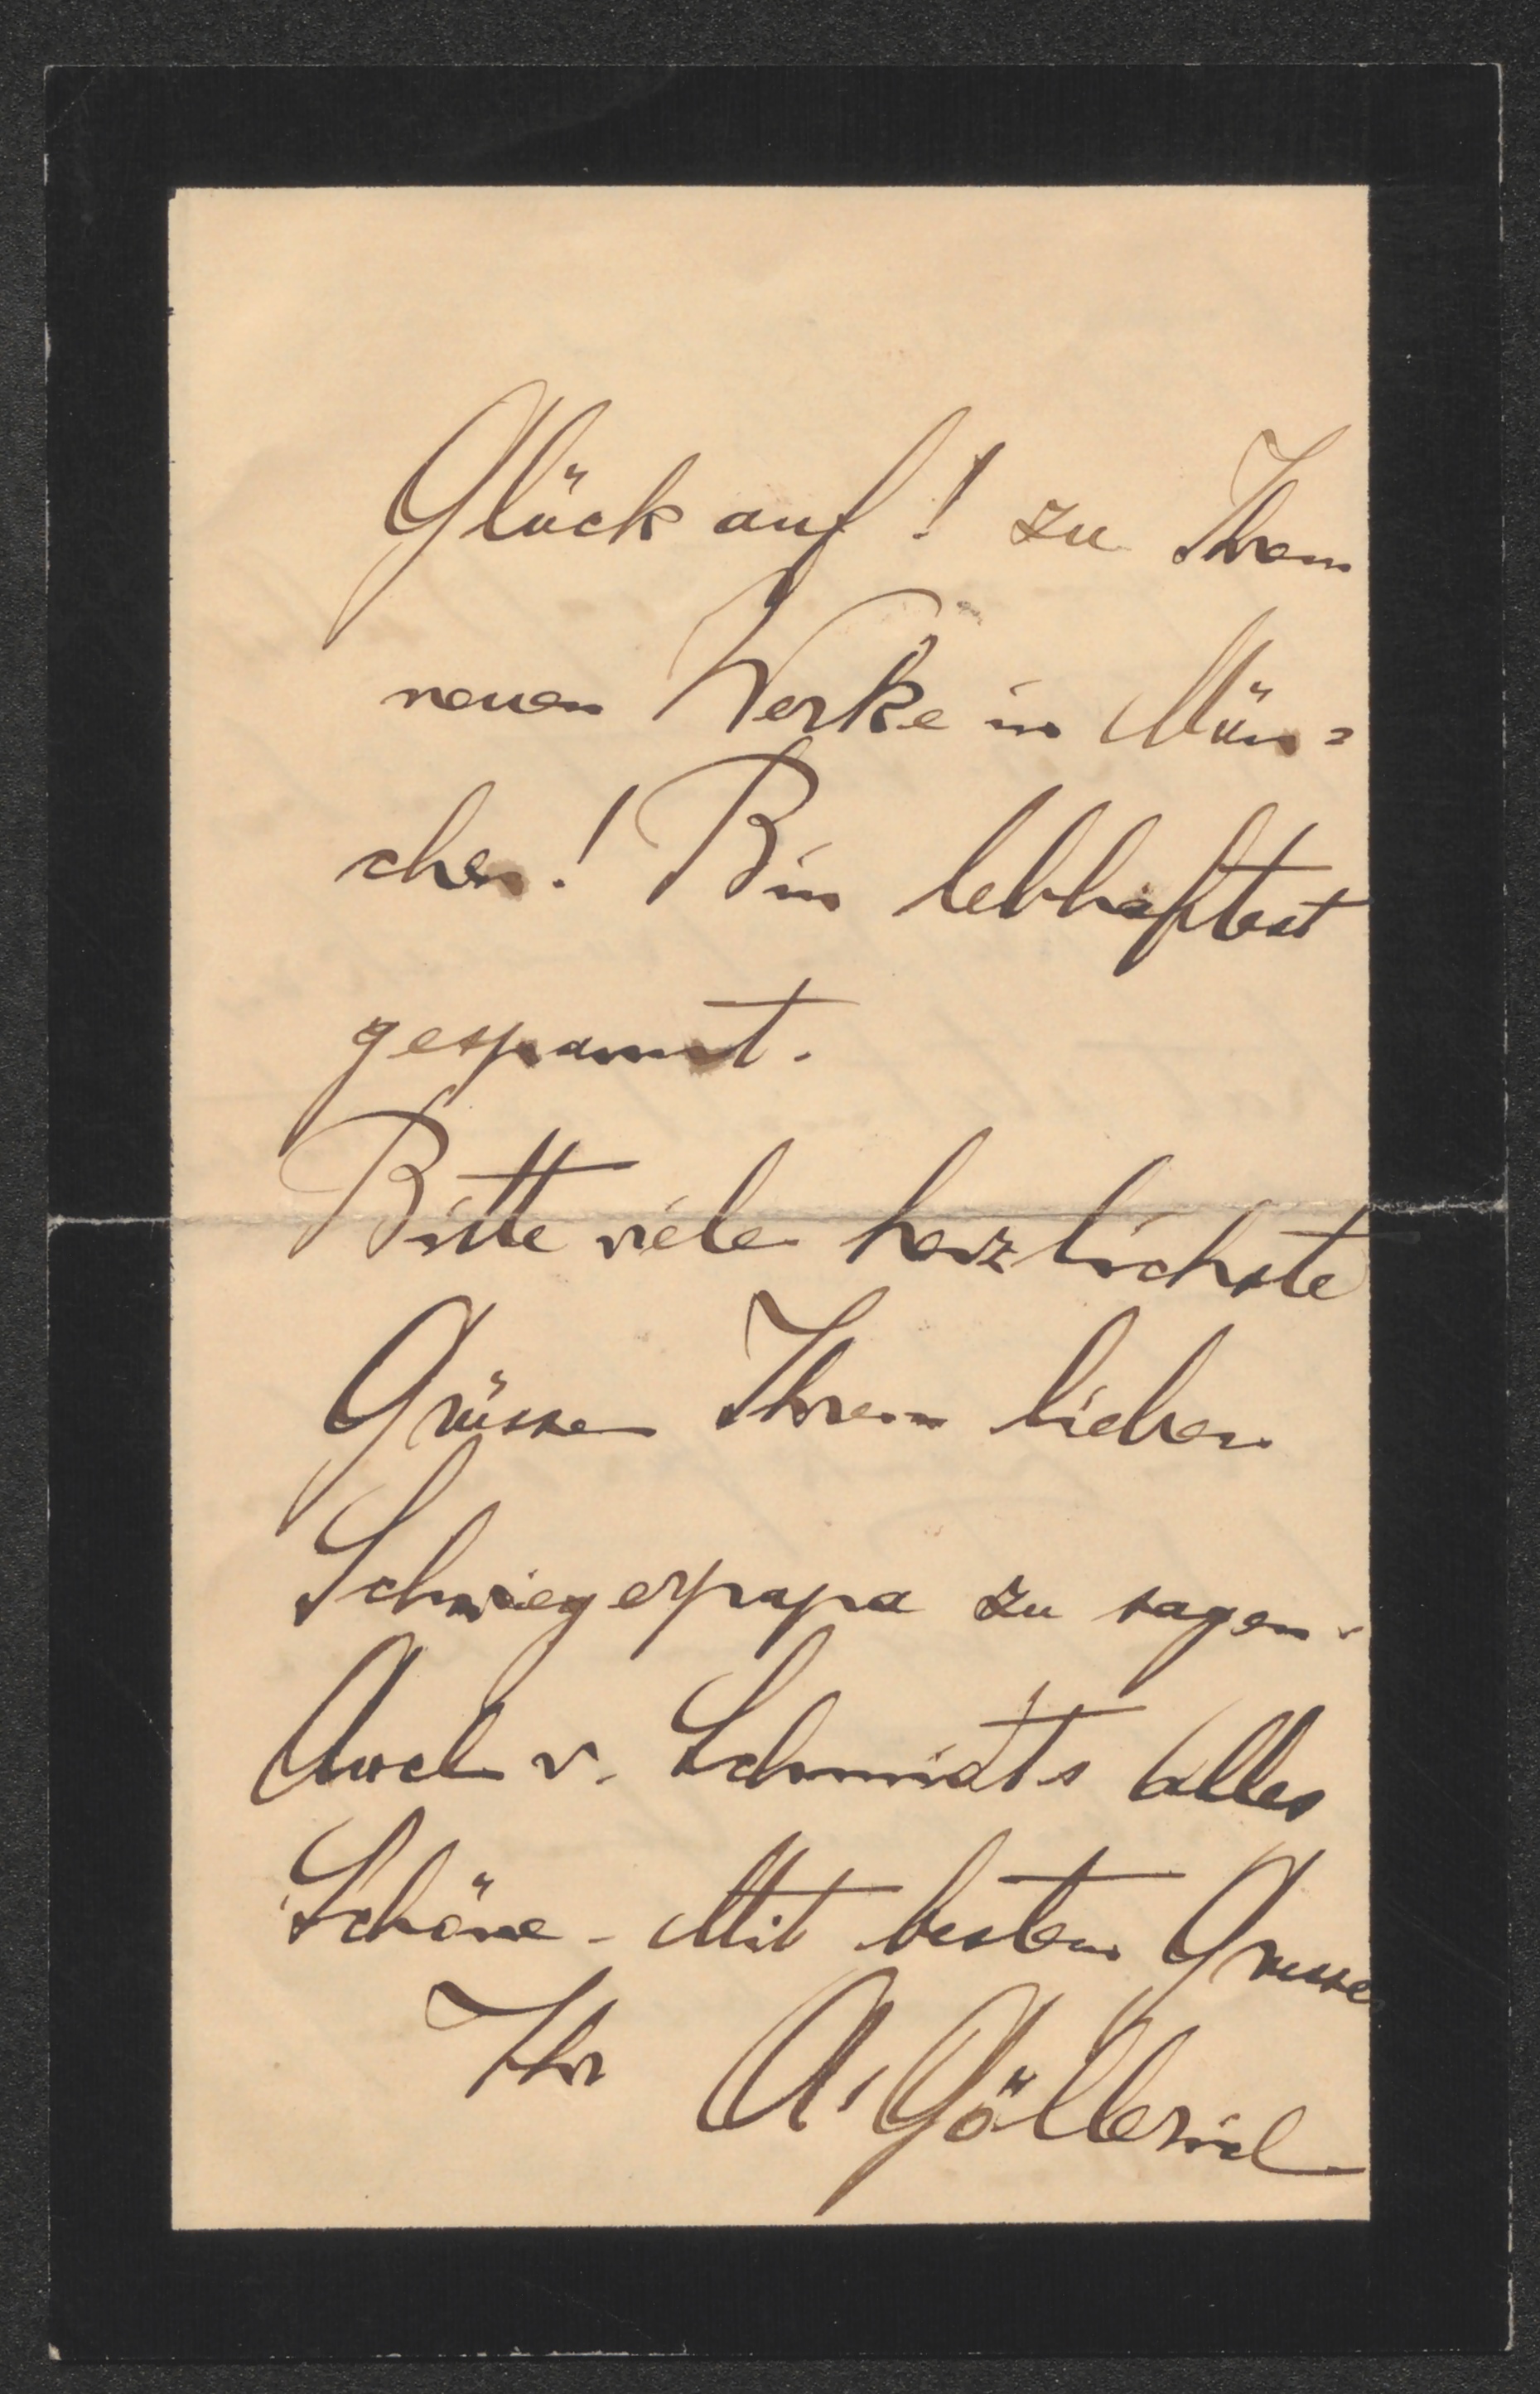 Glück auf! zu Ihrem
neuen Werke in Mün=
chen! Bin lebhaftest
gespannt.
Bitte viele herzlichste
Grüsse Ihrem lieben
Schwiegerpapa zu sagen.
Auch v. Schmidts alles
Schöne - Mit bestem Grusse
Ihr A. Göllerich